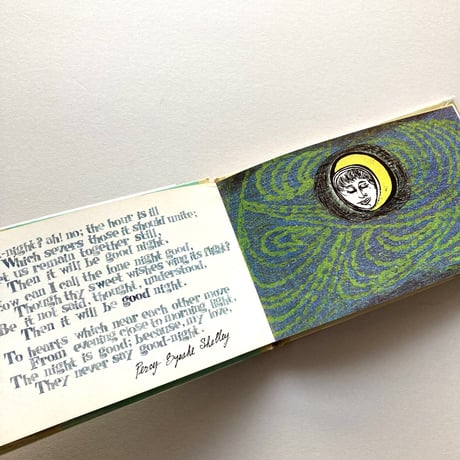 night? ah! no; the hour is ill
Which severs those it should unite;
us remain together still,
Then it will be good night.
ow can I call the lone night good,
Though thy sweet wishes wing its flight?
Be it not said, thought, understood,
Then it will be good night.
To hearts which near each other move
From evening close to morning light,
The night is good; because, my love,
They never say good-night.
Percy Bysshe Shelley